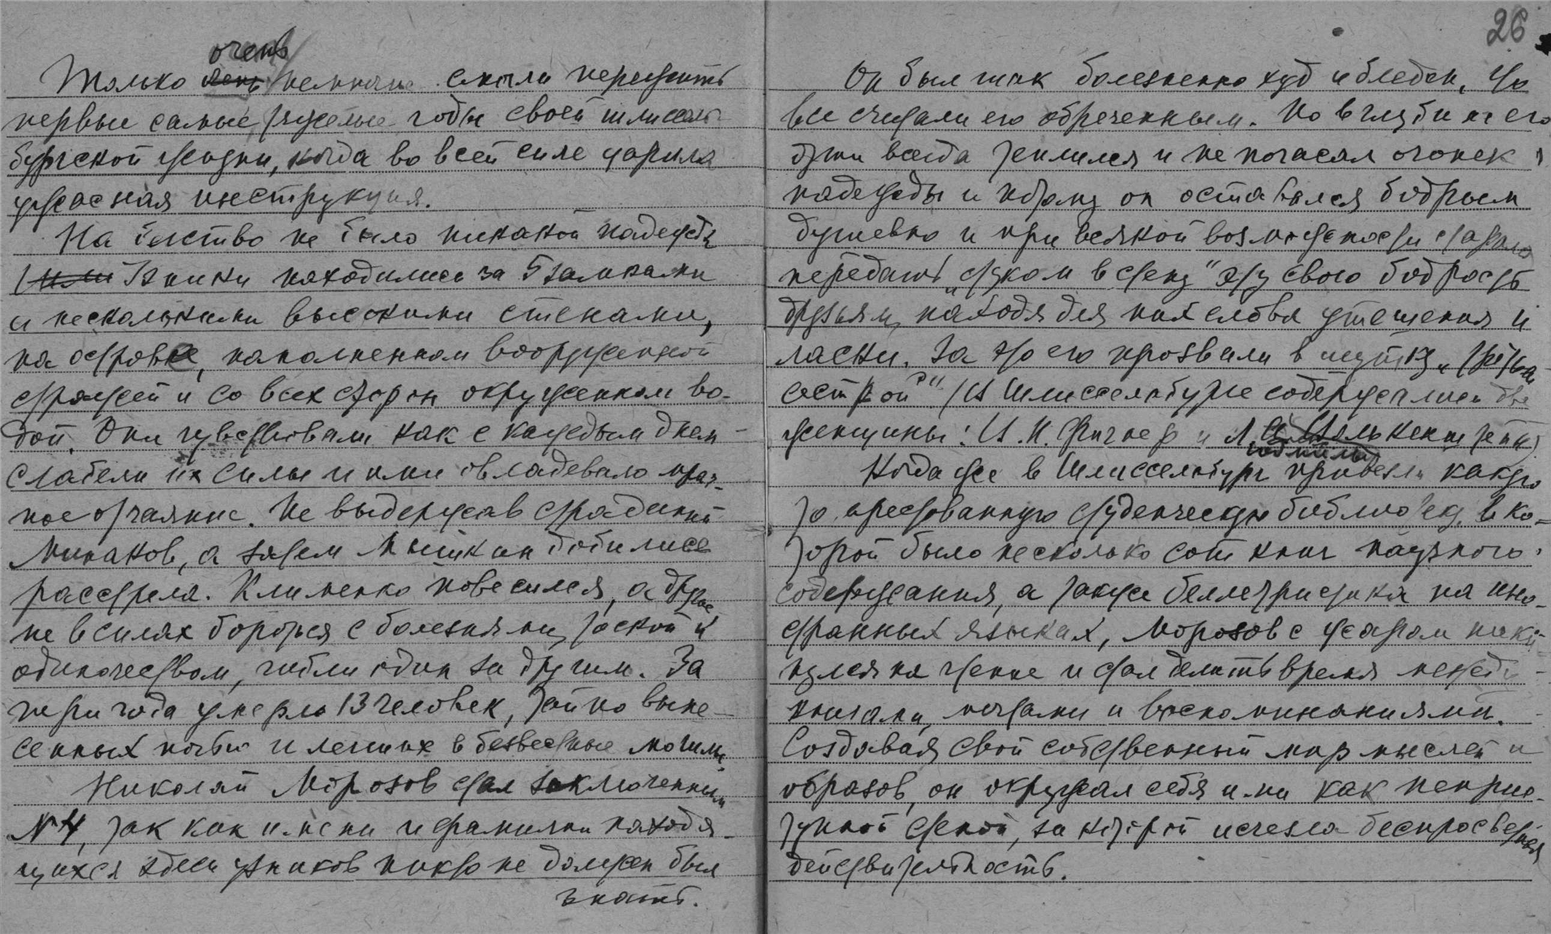 очень
Только немногие смогли пережить
первые самые тяжелые годы своей шлиссель-
бургской жизни, когда во всей силе царила
ужасная инструкция.
На бегство не было никакой надежды
Узники находились за 5 замками
и несколькими высокими стенами,
на острове, наполненном вооруженной
стражей и со всех сторон окруженном во-
дой. Они чувствовали как с каждым днем
слабели их силы и ими овладевало мрач-
ное отчаяние. Не выдержав страданий
Минаков, а затем Мышкин добились
расстрела. Клименко повесился, а другие
не в силах бороться с болезнями, тоской и
одиночеством, гибли один за другим. За
три года умерло 13 человек, тайно выне-
сенных ночью и легших в безвестные могилы.
Николай Морозов стал заключенным
№ 4, так как имени и фамилии находя-
щихся здесь узников никто не должен был
знать.
26
Он был так болезненно худ и бледен, что
все считали его обреченным. Но в глубине его
души всегда теплился и не погасал огонек
надежды и потому он оставался бодрым
душевно и при всякой возможности старался
передать „стуком в стену" эту свою бодрость
друзьям, находя для них слова утешения и
ласки. За это его прозвали в шутку „
сестрой" (В Шлиссельбурге содержались две
женщины: В. Н. Фигнер и Л. А. Волькенштейн)
Когда же в Шлиссельбург привезли какую
то арестованную студенческую библиотеку, в ко-
торой было несколько сот книг научного
содержания, а также беллетристика на ино-
странных языках, Морозов с жаром наки-
нулся на чтение и стал делить время между
книгами, мечтами и воспоминаниями.
Создавая свой собственный мир мыслей и
образов, он окружал себя ими как неприс-
тупной стеной, за которой исчезла беспросветная
действительность.